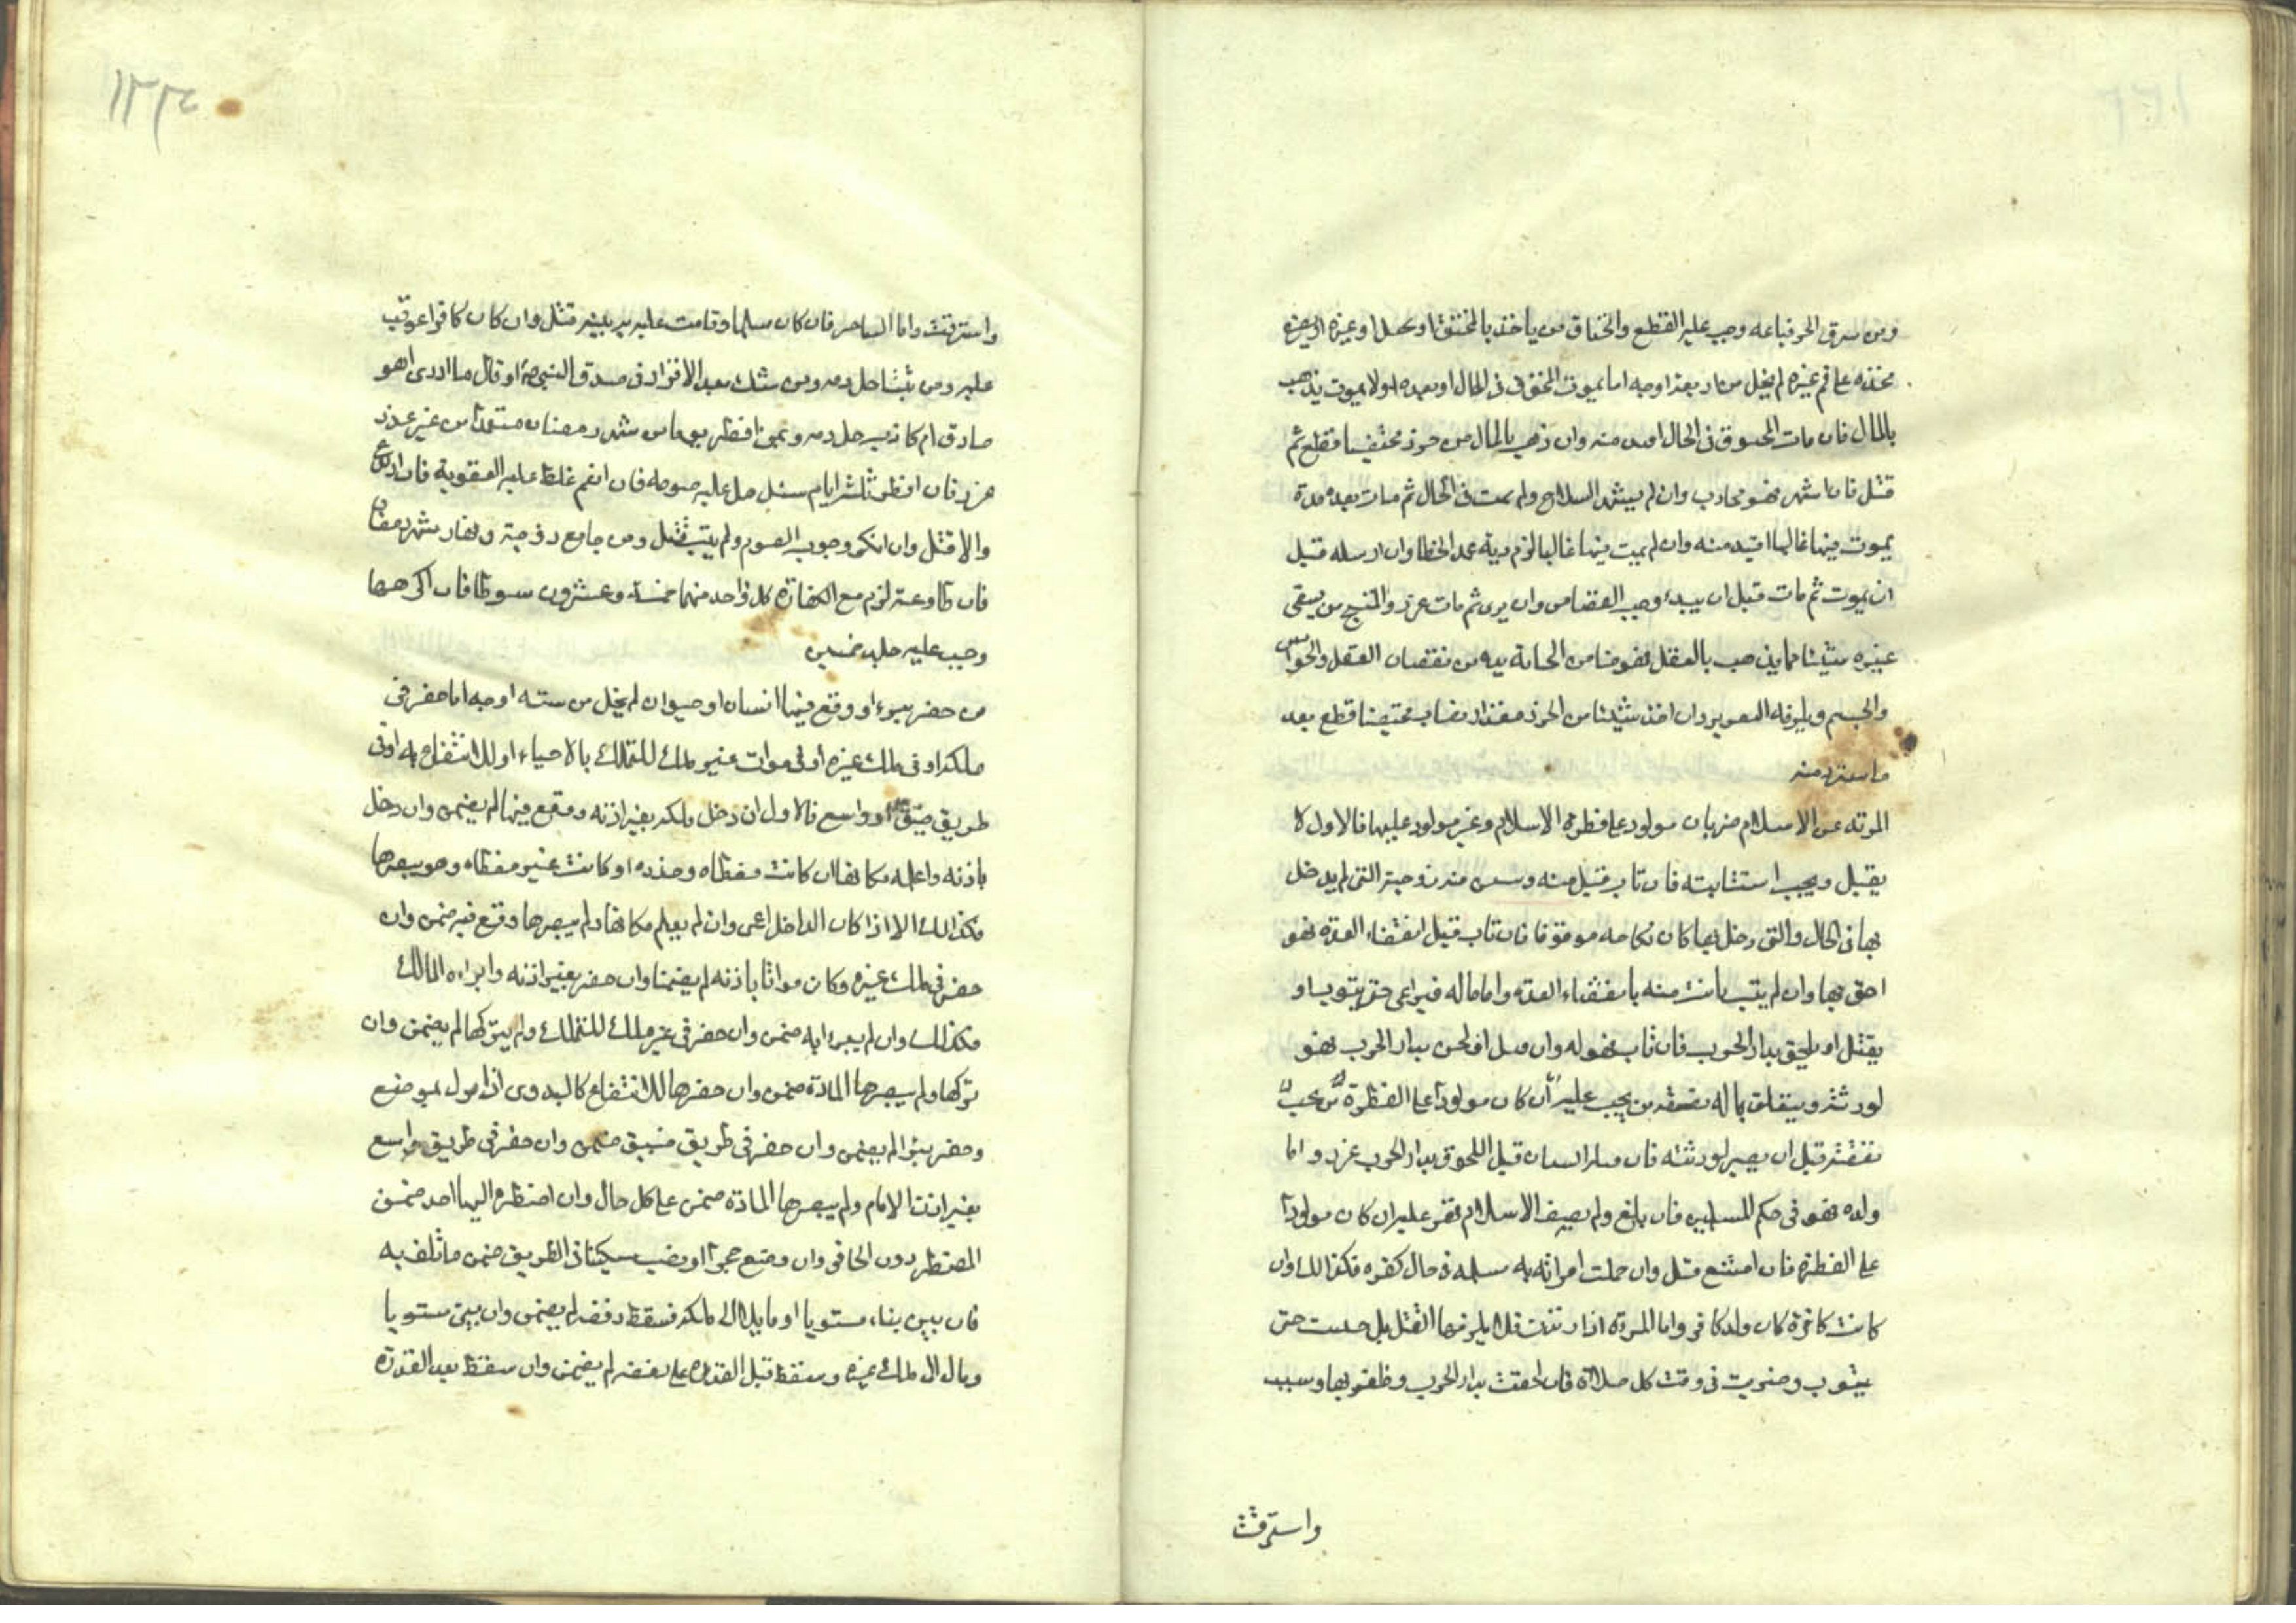 ومن سرق الحر فباعه وجب عليه القطع والخناق من ياخذ بالمخنقة او بحبل او غيره او يضع
مخدة على فم غيره لم يخل من اربعة اوجه اما يموت المخنوق فى الحال او بعده او لا يموت يذهب
بالمال فان مات المخنوق فى الحال اقيد منه وان ذهب بالمال من حرز مختفيا قطع ثم
قتل فان اشهر فهو محارب وان لم يشهر السلاح ولم يمت فى الحال ثم مات بعده مدة
يموت فيها غالبا اقيد منه وان لم يمت فيها غالبا لزم دية عمد الخطا وان ارسله قبل
ان يموت ثم مات قبل ان يبرء وجب القصاص وان برى ثم مات عزر والمبنج من يسقى
غيره شيئا مما يذهب بالعقل فهو ضامن الجناية يده من نقصان العقل والحواس
والجسم ويلزمه التعزير وان اخذ شيئا من الحرز مقدار نصاب مختفيا قطع بعد
ما استرد منه
المرتد عن الاسلام ضربان مولود على فطرة الاسلام وغير مولود عليها فالاول لا
يقبل ويجب استتابته فان تاب قبل منه و منه زوجته التى لم يدخل
بها فى الحال والتى دخل بها كان نكاحه موقوفا فان تاب قبل انقضاء العدة فهو
احق بها وان لم يتب بانت منه بانقضاء العدة واما ماله فيراعى حتى يتوب او
يقتل او يلحق بدار الحرب فان تاب فهو له وان قتل او لحق بدار الحرب فهو
لورثته ويتعلق بماله نفقة من يجب عليه ان كان مولودا على الفطرة من يجب
نفقته قبل ان يصير لورثته فان قتله انسان قبل اللحوق بدار الحرب عزر واما
ولده فهو فى حكم المسلمين فان بلغ ولم يصف الاسلام نفر عليه ان كان مولودا
على الفطرة فان امتنع قتل وان حملت امراته به مسلمة فى حال كفره فكذلك وان
كانت كافرة كان ولد كافر واما المرءة اذا ارتدت فلا يلزمها القتل بل حبست حتى
يتوب وضربت فى وقت كل صلاة فان لحقت بدار الحرب وظفر بها وسبيت
واسترقت
١٣٣٤
واسترقت واما الساحر فان كان مسلما وقامت عليه به بينة قتل وان كان كافرا عوقب
عليه ومن تنبئا حل دمه ومن شك بعد الاقرار فى صدق النبى ص او قال ما ادرى اهو
صادق ام كاذب حل دمه ومن افطر يوما من شهر رمضان متعمدا من غير عذر
عزر فان افطر ثلثة ايام سئل هل عليه صومه فان انعم غلظ عليه العقوبة فان ارتدع
والا قتل وان انكر وجوب الصوم ولم يتب قتل ومن جامع زوجته ونهار شهر رمضان
فان طاوعته لزم مع الكفارة كل واحد منهما خمسة وعشرون سوطا فان اكرهها
وجب عليه جلد خمسين
من حفر بيرءا ووقع فيها انسان او حيوان لم يخل من ستة اوجه اما حفر فى
ملكه او فى ملك غيره او فى موات غير ملك للتملك بالاحياء او للانتفاع به او فى
طريق ضيق او واسع فالاول ان دخل ملكه بغير اذنه ووقع فيها لم يضمن وان دخل
باذنه واعلمه مكانها ان كانت مغطاه وحذره او كانت غير مغطاه وهو يبصرها
فكذلك الا اذا كان الداخل اعمى وان لم يعلم مكانها ولم يبصرها وقع فيه ضمن وان
حفر فى ملك غيره وكان مواتا باذنه لم يضمنا وان حفر بغير اذنه وابراءه المالك
فكذلك وان لم يبرء ايه ضمن وان حفر فى غير ملك للتملك ولم يتركها لم يضمن وان
تركها ولم يبصرها المادة ضمن وان حفرها للانتفاع كالبدوى اذا نزل بموضع
وحفر بيرا لم يضمن وان حفر فى طريق ضيق ضمن وان حفر فى طريق واسع
بغير اذن الامام ولم يبصرها المادة ضمن على كل حال وان اضطره اليها احد ضمن
المضطر دون الحافر وان وضع حجرا او نصب سكينا فى الطريق ضمن ما تلف به
فان بين بناء مستويا او مايلا الى ملكه فسقط دفعة لم يضمن وان بين مستويا
ومال الى ملك غيره وسقط قبل القدرة على نقضه لم يضمن وان سقط بعد القدرة